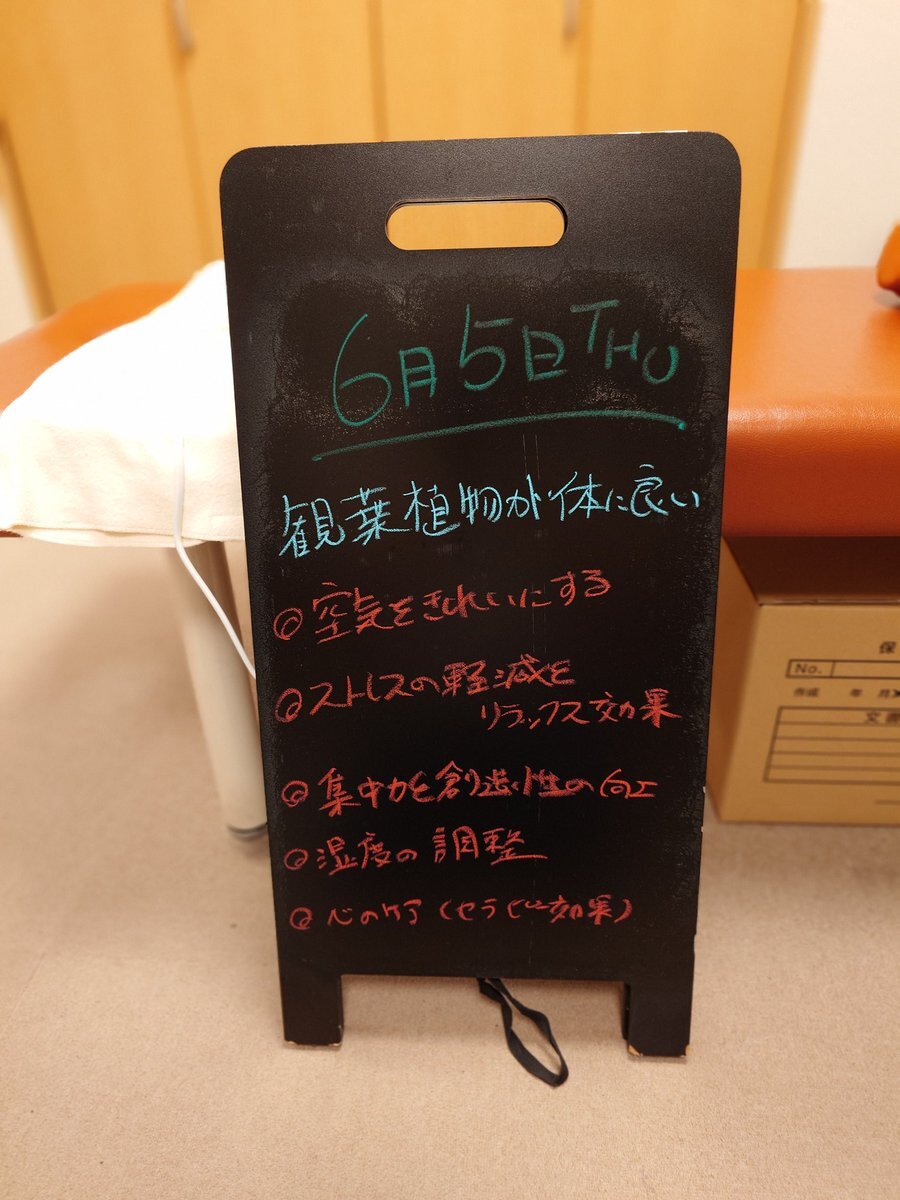 6月5日THU
観葉植物が体に良い
◎空気をきれいにする
◎ストレスの軽減と
リラックス効果
◎集中力と創造性の向上
◎湿度の調整
◎心のケア(セラピー効果)
保
No.
作成 年 月
文書